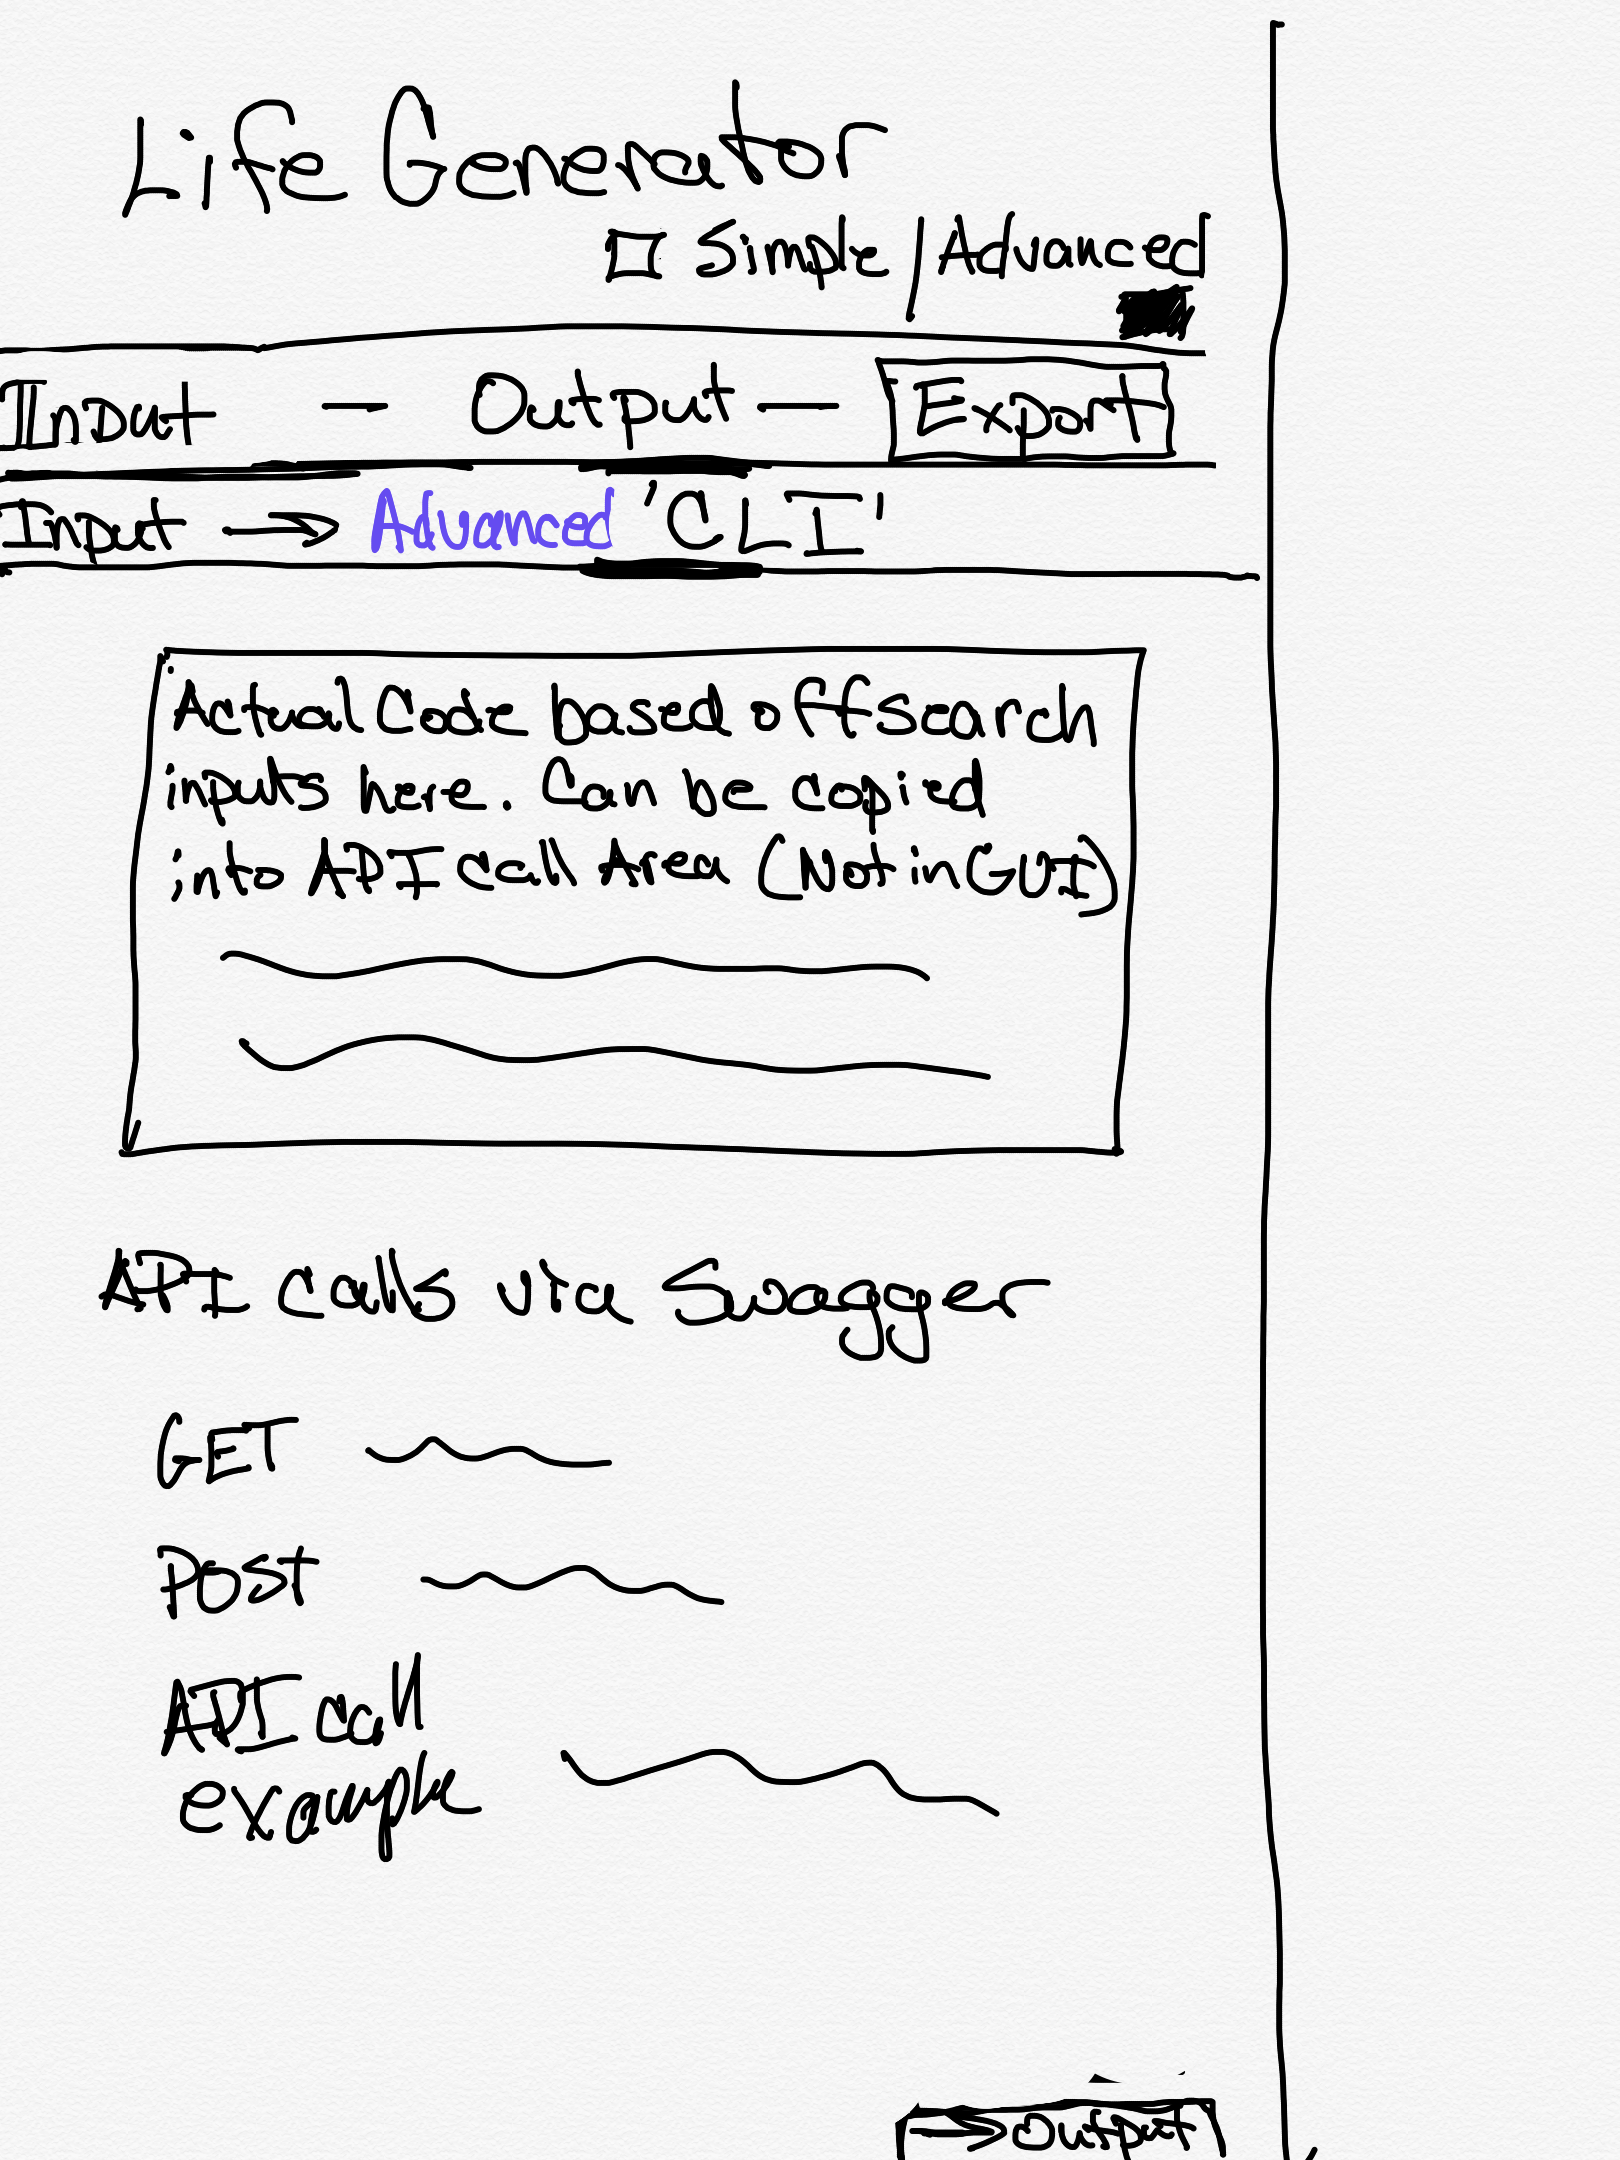 Life Generator
Simple / Advanced
Input — Output — Export
Input → Advanced 'CLI'
Actual Code based off search
inputs here. Can be copied
into API call Area (Not in GUI)
API calls via Swagger
GET
POST
API call
example
→ output